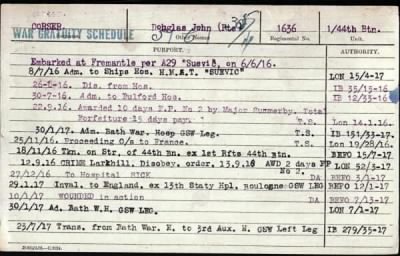 CORSER. Douglas John (Pte) 1636 1/44th Btn.
WAR GRATUITY SCHEDULE Other Names Regimental No. Unit
PURPORT. AUTHORITY.
Embarked at Fremantle per A29 "Suevic, on 6/6/16.
8/7/16 Adm. to Ships Hos. H.M.A.T. "SUEVIC" LON 15/4-17
Dis. from Hos. IB 35/13-16
30-7-16. Adm. to Bulford Hos. IB 12/33-16
22.9.16. Awarded 10 days F.P. No 2 by Major Summerby. Total
Forfeiture 15 days pay. T.S. LON 14.1.16.
30/1/17. Adm. Bath War. Hosp GSW Leg. T.S. IB 131/33-17.
25/11/16. Proceeding O/s to France. T.S. LON 19/28/16.
18/11/16 Tkn. on Str. of 44th Bn. ex 1st Rfts 44th Btn. BEFO 15/7-17
12.9.16 CRIME Larkhill, Disobey. order. 13.9.16 AWD 2 days FP No 2. LON 52/3-17
27/12/16 To Hospital SICK DA BEFO 9/12-17
29.1.17 Inval. to England, ex 13th Staty Hpl. Boulogne GSW LEG
10/1/17 WOUNDED in action DA BEFO 7/13-17
30/1/17 Ad. Bath W.H. GSW LEG. LON 7/1-17
23/7/17 Trans. from Bath War. H. to 3rd Aux. H. GSW Left Leg IB 279/35-17